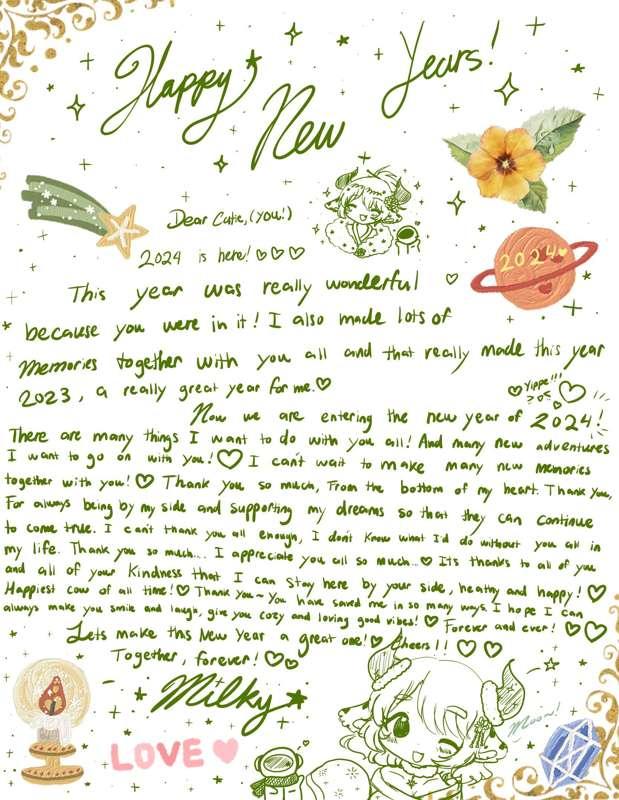 Happy
New
Years!
Dear Cutie, (you!)
2024 is here! ♡♡♡
2024
This year was really wonderful
because you were in it! I also made lots of
memories together with you all and that really made this year
2023, a really great year for me.♡
Yippe!!!
Now we are entering the new year of 2024!
There are many things I want to do with you all! And many new adventures
I want to go on with you! ♡ I can't wait to make many new memories
together with you! ♡ Thank you so much, From the bottom of my heart. Thank you,
For always being by my side and supporting my dreams so that they can continue
to come true. I can't thank you all enough, I don't know what I'd do without you all in
my life. Thank you so much... I appreciate you all so much...♡ Its thanks to all of you
and all of your kindness that I can stay here by your side, heathy and happy! ♡
Happiest cow of all time! ♡ Thank you~ You have saved me in so many ways. I hope I can
always make you smile and laugh, give you cozy and loving good vibes! ♡ Forever and ever! ♡♡
Lets make this New Year a great one! ♡ Cheers!! ♡♡
Together, forever! ♡♡
★Milky★
Moon!
LOVE ♥